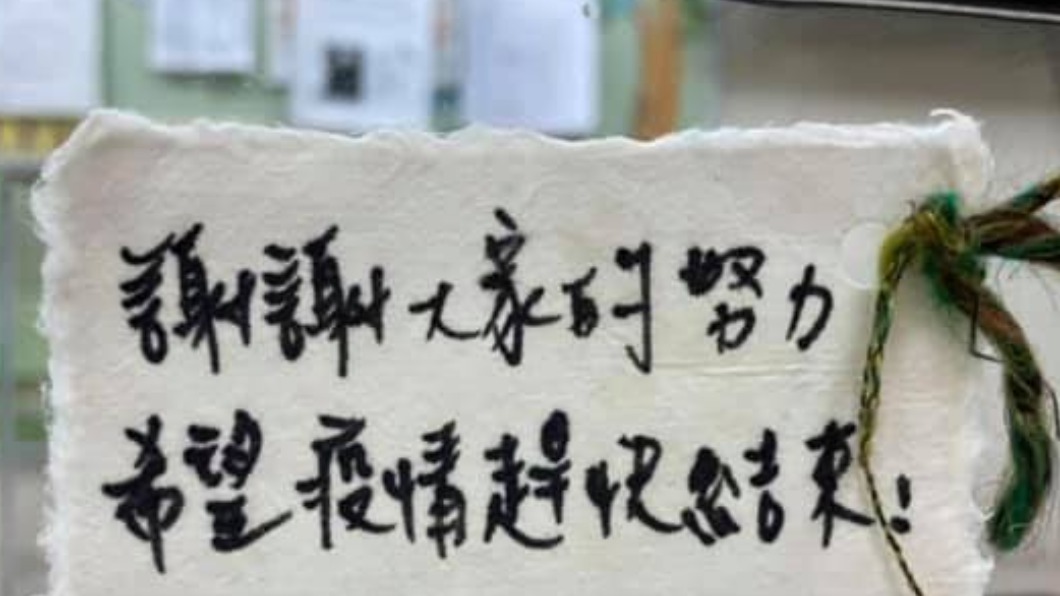 謝謝大家的努力
希望疫情趕快結束!